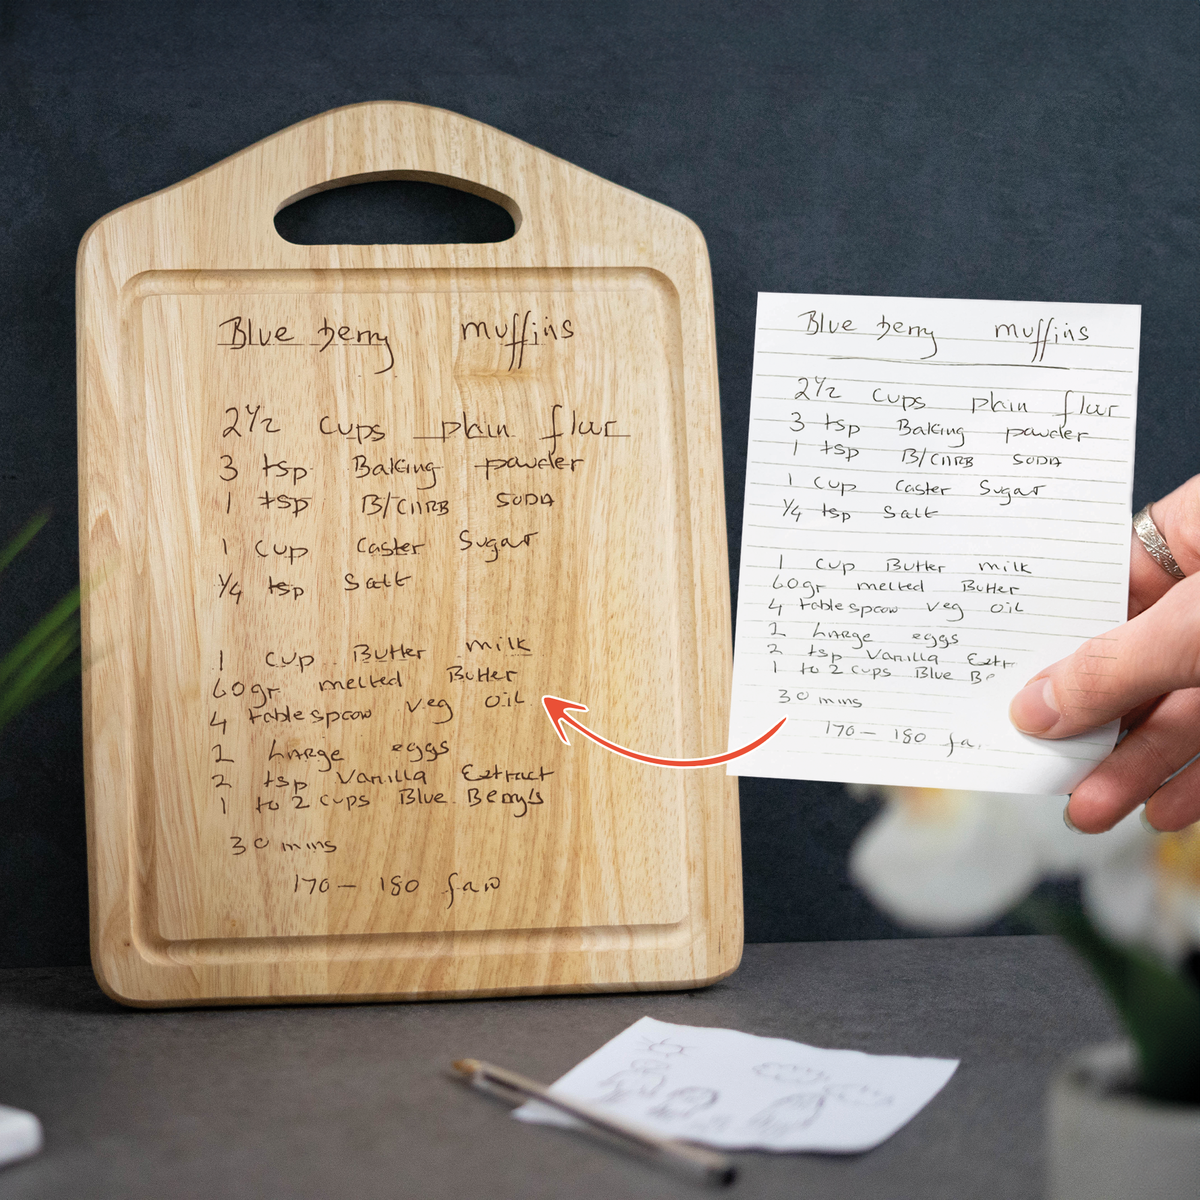 Blue berry muffins
2½ cups plain flour
3 tsp Baking powder
1 tsp B/CARB SODA
1 cup Caster Sugar
¼ tsp Salt
1 cup Butter milk
60gr melted Butter
4 tablespoon veg oil
2 LARGE eggs
2 tsp Vanilla Extract
1 to 2 cups Blue Berry's
30 mins
170 - 180 fan
Blue berry muffins
2½ cups plain flour
3 tsp Baking powder
1 tsp B/CARB SODA
1 cup Caster Sugar
¼ tsp Salt
1 cup Butter milk
60gr melted Butter
4 tablespoon veg oil
2 LARGE eggs
2 tsp Vanilla Extr
1 to 2 cups Blue Be
30 mins
170 - 180 fa